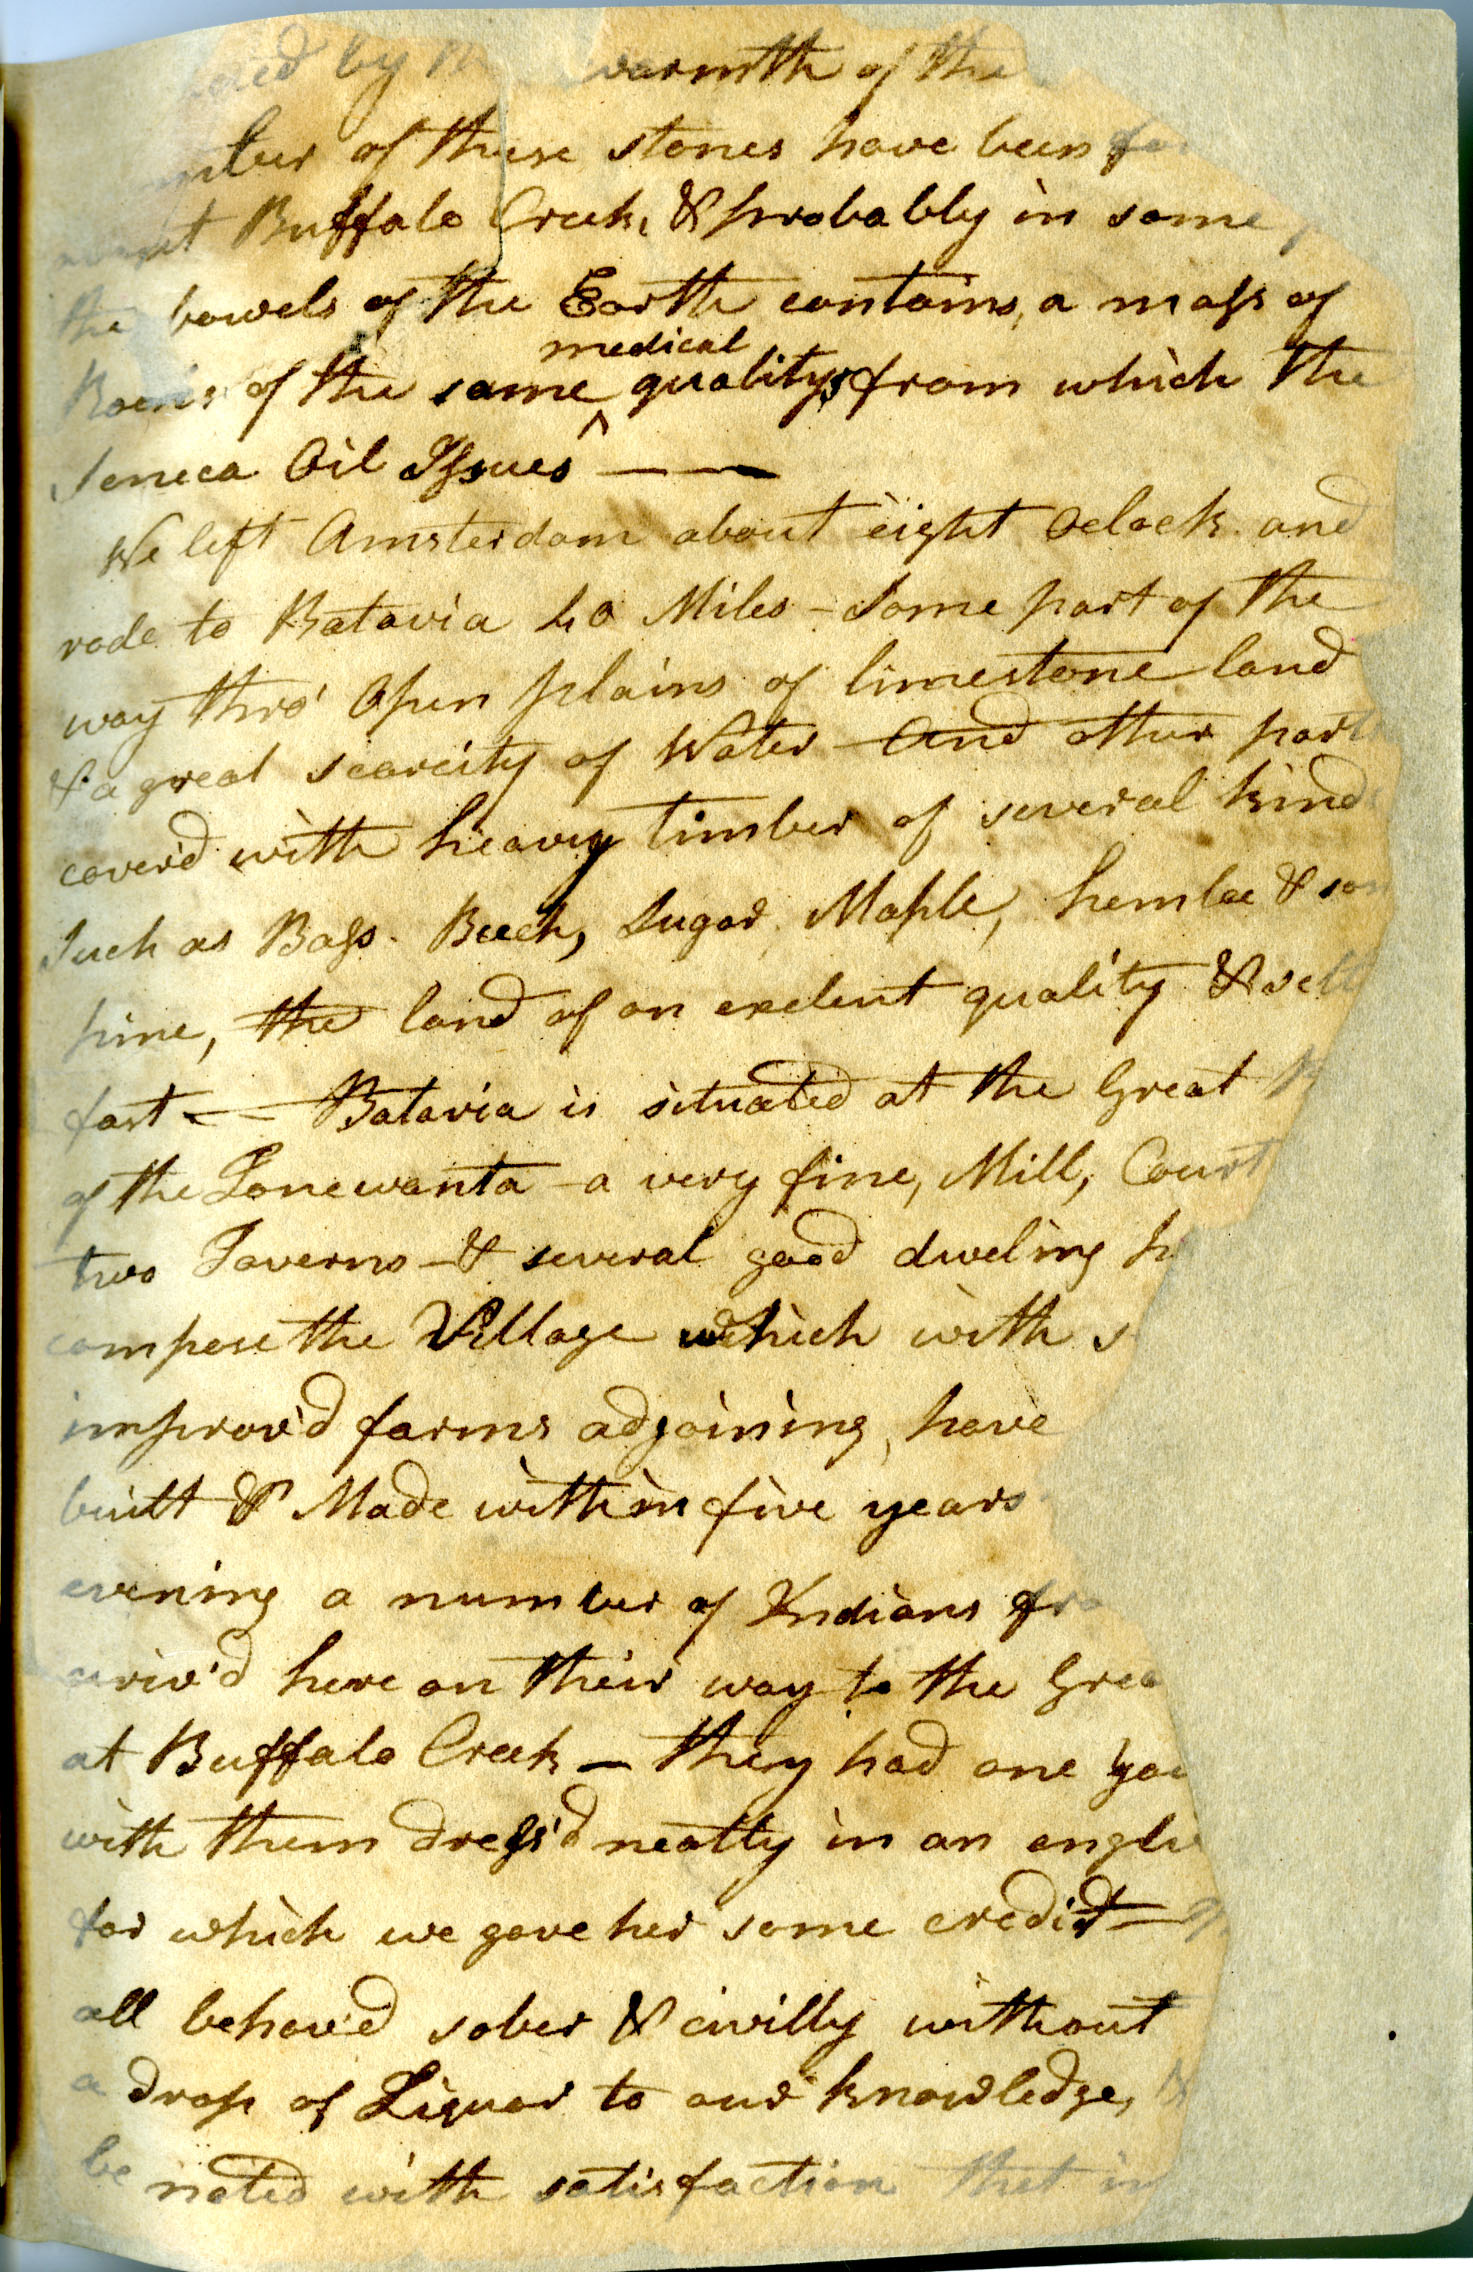 by warmth of the
of these stones have been
Buffalo Creek, & probably in some
the bowels of the Earth contains, a mass of
Rocks of the same medical quality, from which the
Seneca Oil Issues — —
We left Amsterdam about eight Oclock and
rode to Batavia 40 Miles – Some part of the
way thro' Open plains of limestone land
& a great scarcity of Water – And other part
cover'd with heavy timber of several kinds
Such as Bass. Beech, Sugar Maple, hemloc &
pine, the land of an exelent quality &
fast — – Batavia is situated at the Great
of the Tonewanta – a very fine, Mill, Court
two Taverns – & several good dweling
compose the Village which with
improv'd farms adjoining, have
built & Made within five years
evening a number of Indians
arriv'd here on their way to the
at Buffalo Creek – they had one
with them dress'd neatly in an
for which we gave her some credit –
all behav'd sober & civilly without
a drop of Liquor to our knowledge,
be noted with satisfaction that in